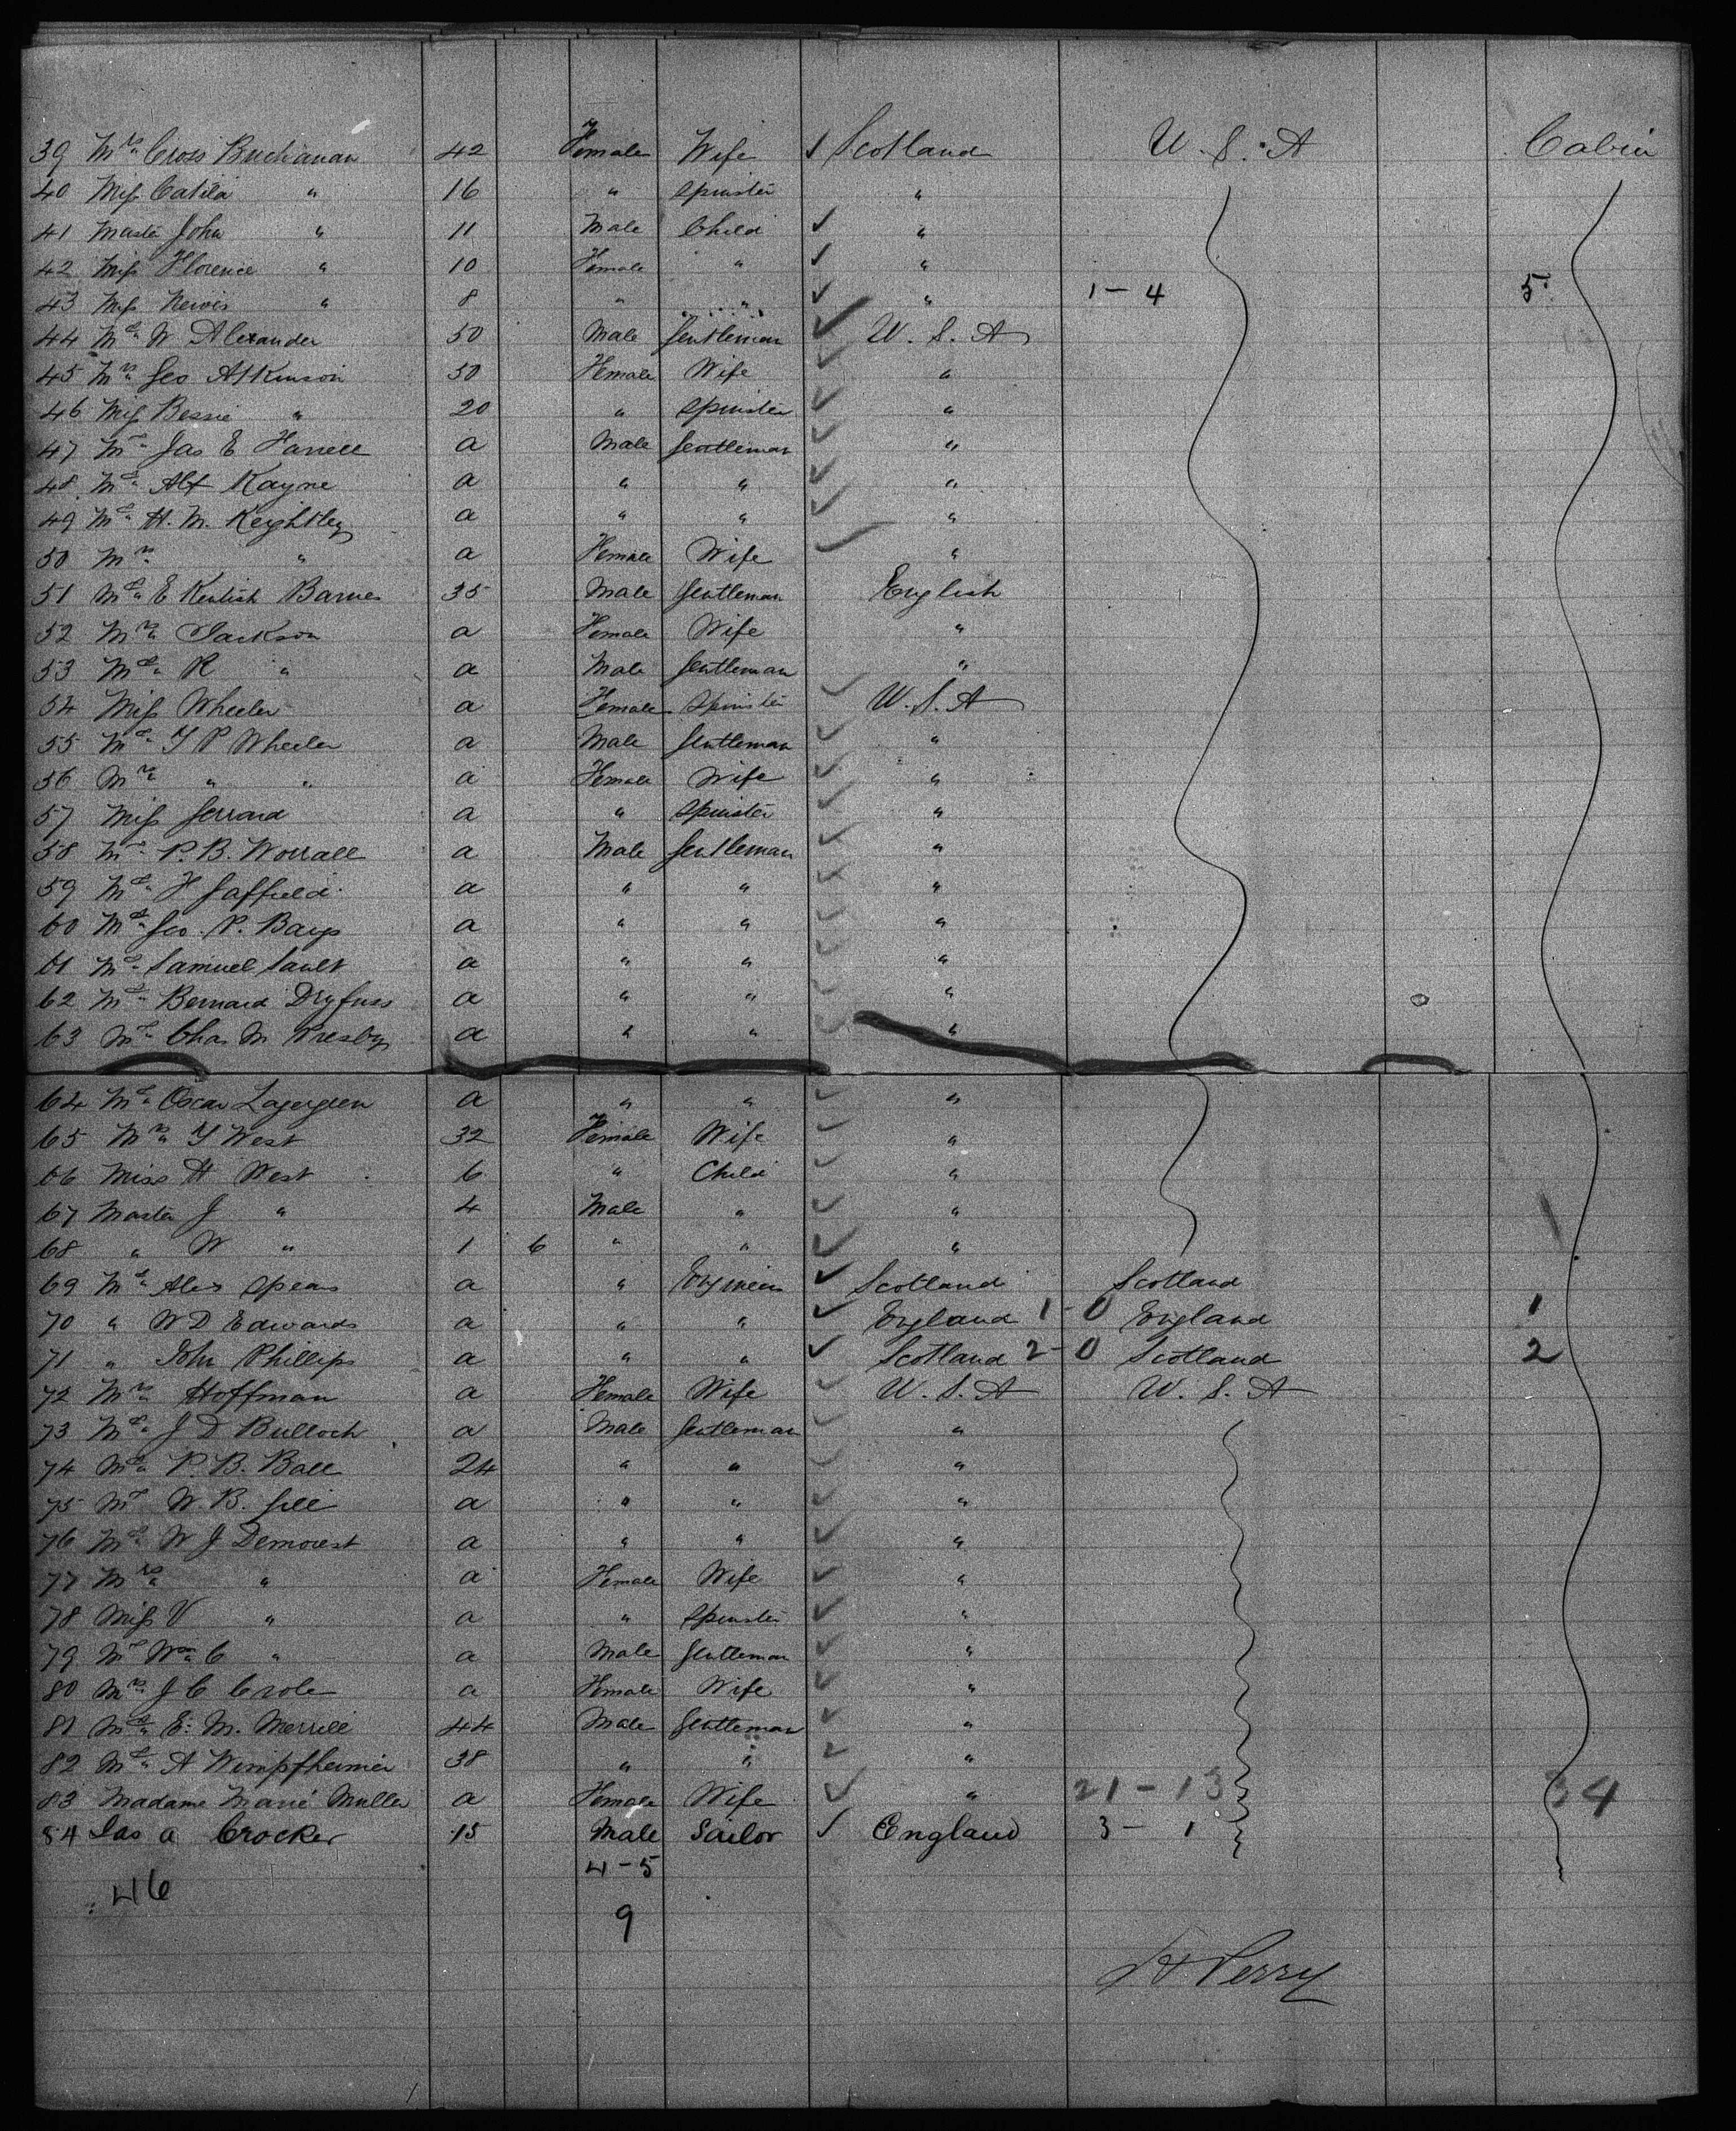 39 Mrs Cross Buchanan 42 Female Wife ✓ Scotland U. S. A Cabin
40 Miss Catila " 16 " Spinster "
41 Master John " 11 Male Child ✓ "
42 Miss Florence " 10 Female " ✓ "
43 Miss " 8 " " ✓ " 1-4 5
44 Mr W Alexander 50 Male Gentleman ✓ U. S. A
45 Mrs Geo Atkinson 50 Female Wife ✓ "
46 Miss Bessie " 20 " Spinster ✓ "
47 Mr Jas E Harrell a Male Gentleman ✓ "
48 Mr Alf Kayne a " " ✓ "
49 Mr H. M. Keightley a " " ✓ "
50 Mrs " a Female Wife ✓ "
51 Mr E Kentish Barnes 35 Male Gentleman English
52 Mrs Jackson a Female Wife "
53 Mr R " a Male Gentleman "
54 Miss Wheeler a Female Spinster ✓ U. S. A
55 Mr T P Wheeler a Male Gentleman ✓ "
56 Mrs " " a Female Wife ✓ "
57 Miss Gerrard a " Spinster ✓ "
58 Mr P. B. Worrall a Male Gentleman ✓ "
59 Mr H Gaffield a " " ✓ "
60 Mr Geo. P. Bays a " " ✓ "
61 Mr Samuel Sault a " " ✓ "
62 Mr Bernard Dryfuss a " " ✓ "
63 Mr Chas M Presby a " " ✓ "
64 Mr Oscar Lagergren a " " ✓ "
65 Mrs Y West 32 Female Wife ✓ "
66 Miss H West 6 " Child ✓ "
67 Master J " 4 Male " ✓ "
68 " W " 1 6 " " ✓ "
69 Mr Alex Spears a " Engineer ✓ Scotland Scotland
70 " W D Edwards a " " ✓ England 1-0 England 1
71 " John Phillips a " " ✓ Scotland 2-0 Scotland 2
72 Mrs Hoffman a Female Wife ✓ U. S. A U. S. A
73 Mr J D Bulloch a Male Gentleman ✓ "
74 Mr P. B. Ball 24 " " ✓ "
75 Mr W. B. Gill a " " ✓ "
76 Mr W J Demorest a " " ✓ "
77 Mrs " a Female Wife ✓ "
78 Miss V " a " Spinster ✓ "
79 Mr Wm C " a Male Gentleman ✓ "
80 Mrs J C Crole a Female Wife ✓ "
81 Mr E. M. Merrill 44 Male Gentleman ✓ "
82 Mr A Wimpfheimer 38 " " ✓ "
83 Madame Marié Muller a Female Wife ✓ " 21-13 34
84 Jas a Crocker 15 Male Sailor ✓ England 3-1
4-5
46
9
H Perry